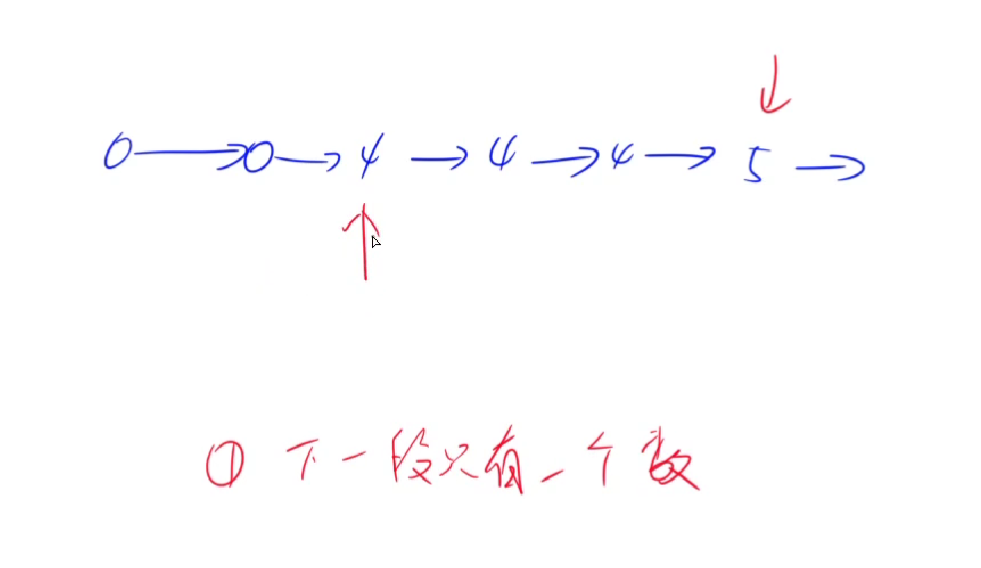 0 → 0 → 4 → 4 → 4 → 5 →
① 下一段只有一个数